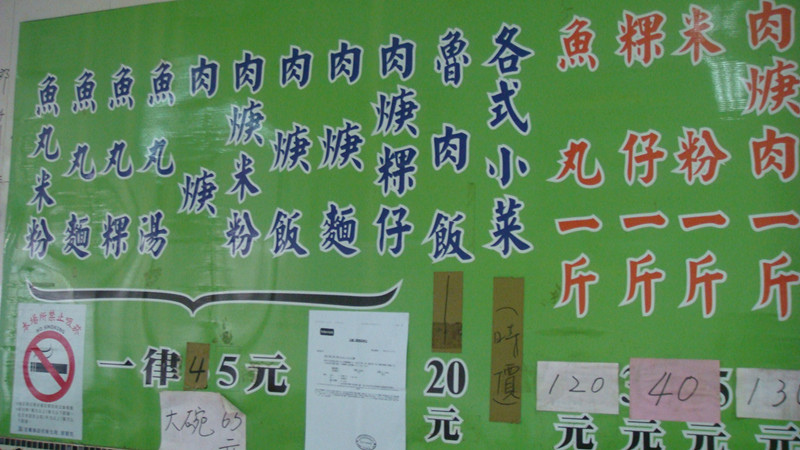 肉焿肉一斤
米粉一斤
粿仔一斤
魚丸一斤
各式小菜
魯肉飯
肉焿粿仔
肉焿麵
肉焿飯
肉焿米粉
肉焿
魚丸湯
魚丸粿
魚丸麵
魚丸米粉
130
元
40
元
元
120
元
(時價)
20
元
一律45元
大碗65
元
本場所禁止吸菸
NO SMOKING